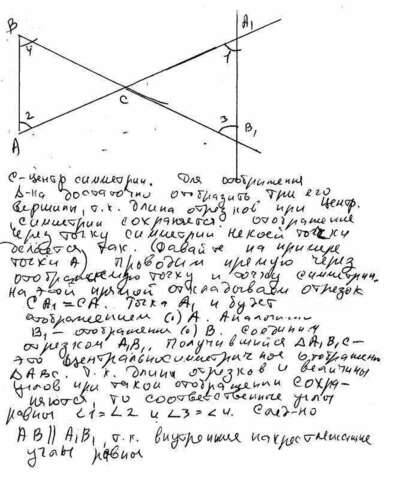 B A₁
4 1
C
2 3
A B₁
C - центр симметрии. Для отображения
Δ-ка достаточно отобразить три его
вершины, т.к. длина отрезков при центр.
симметрии сохраняется. Отображение
через точку симметрии некоей точки
делается так. (Давайте на примере
точки A) Проводим прямую через
отображаемую точку и точку симметрии.
на этой прямой откладываем отрезок
CA₁=CA. Точка A₁ и будет
отображением (·) A. Аналог...
B₁ - отображение (·) B. Соединим
отрезком A₁B₁. Получившийся ΔA₁B₁C -
это центральносимметричное отображение
ΔABC. т.к. длины отрезков и величины
углов при таком отображении сохра-
няются, то соответственные углы
равны ∠1=∠2 и ∠3=∠4. След-но
AB || A₁B₁, т.к. внутренние накрестлежащие
углы равны